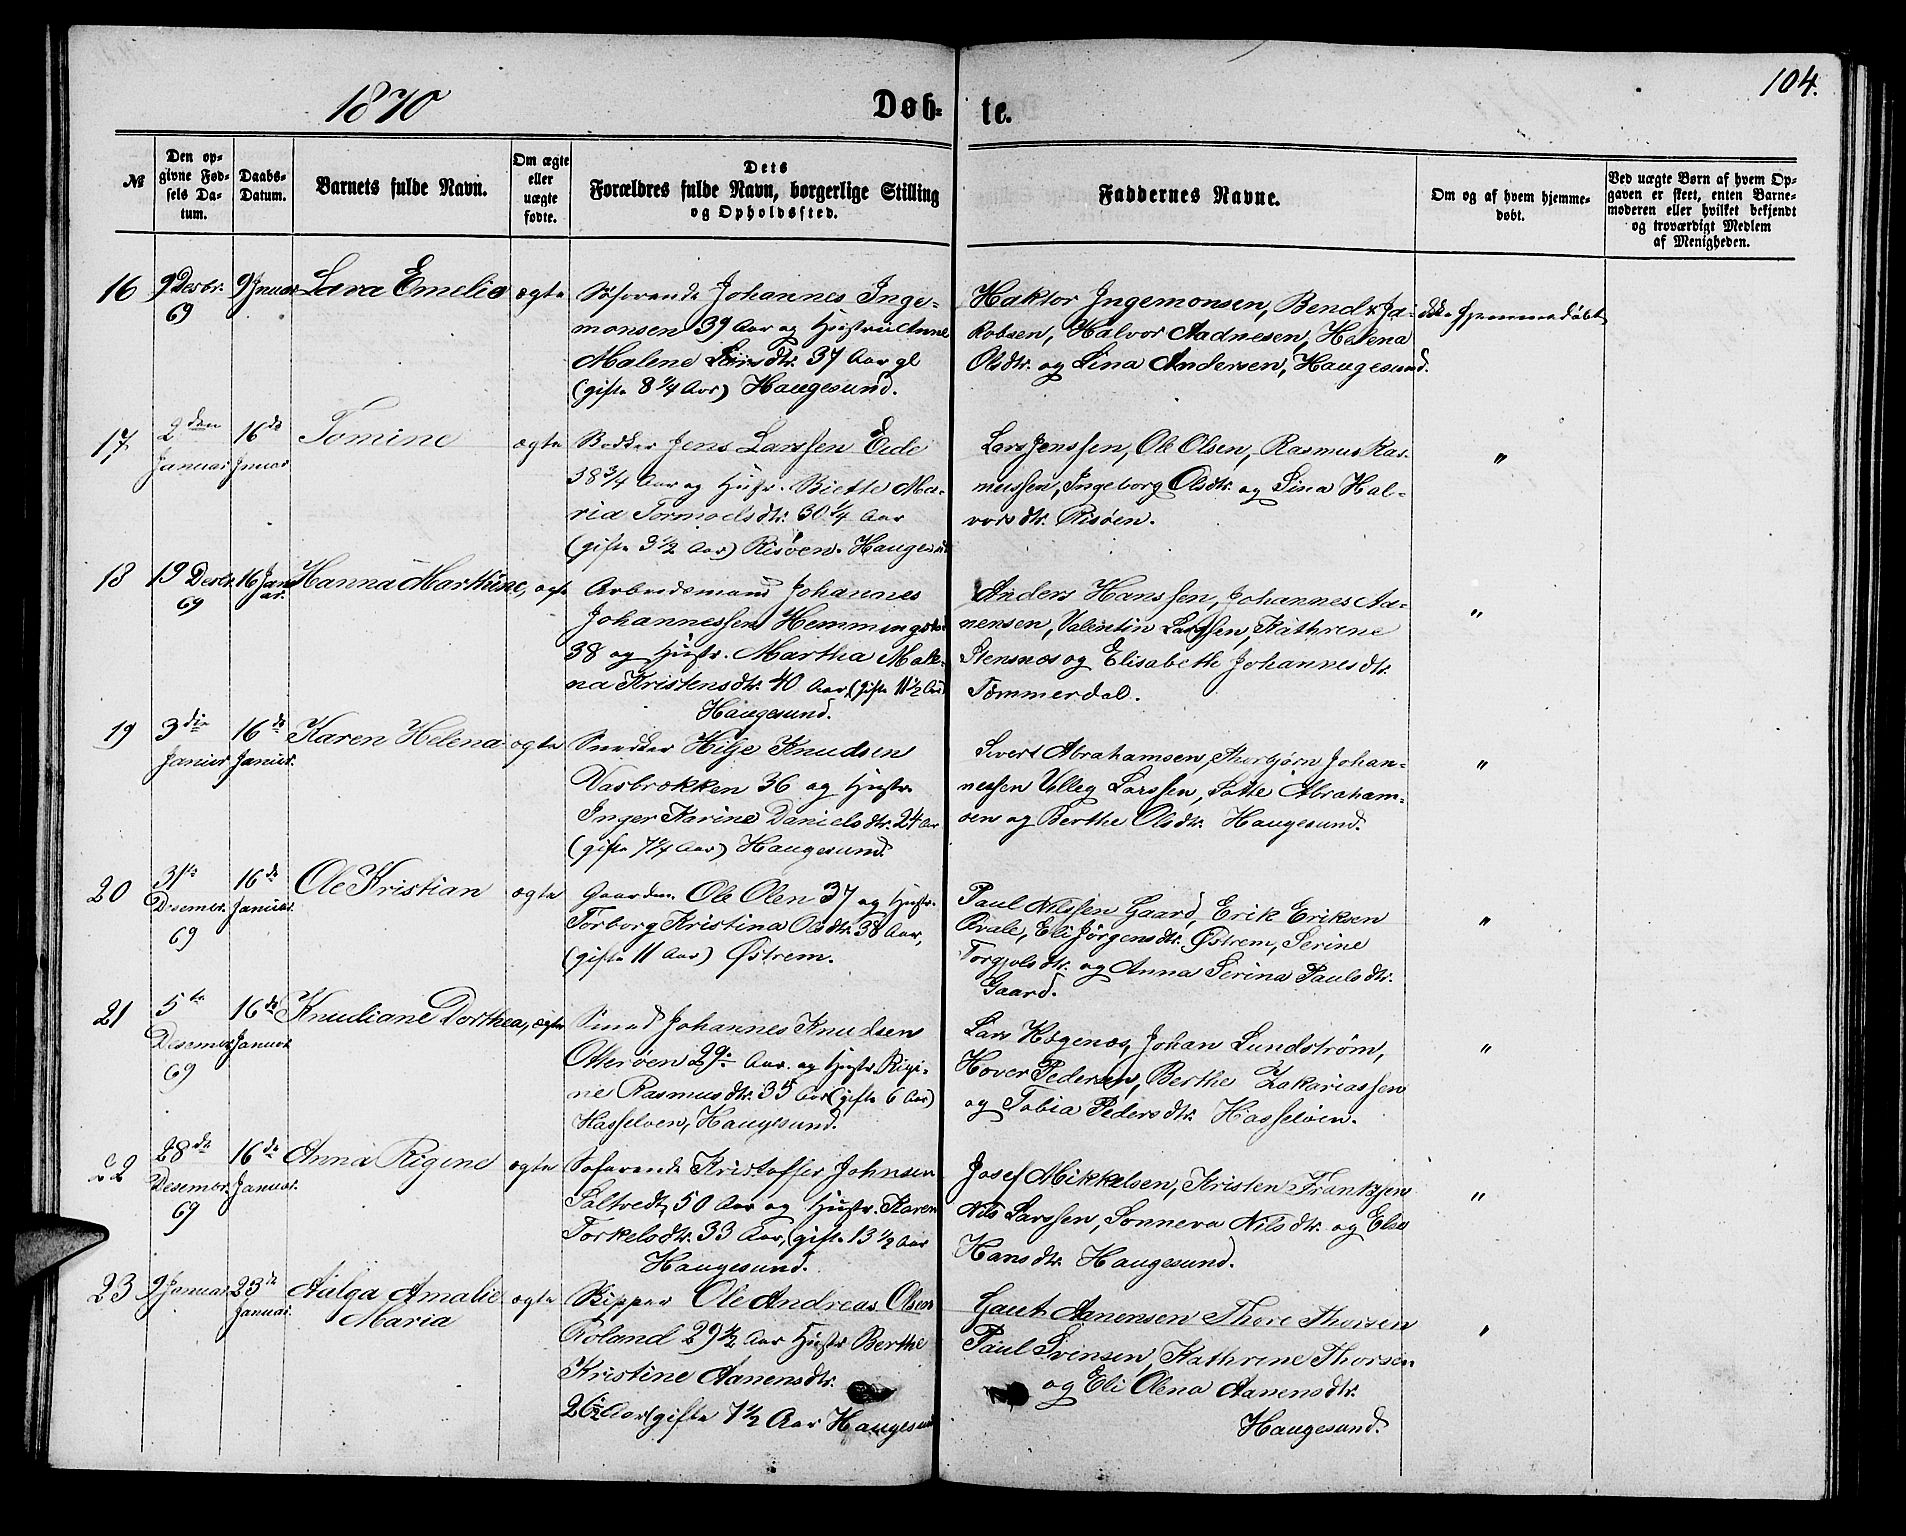 104.
1870
Døb-
te.
№
Den op-
givne Fød-
sels Da-
tum.
Daabs-
Datum.
Barnets fulde Navn.
Om ægte
eller
uægte
fødte.
Dets
Forældres fulde Navn, borgerlige Stilling
og Opholdssted.
Faddernes Navne.
Om og af hvem hjemme-
døbt.
Ved uægte Børn af hvem Op-
gaven er skeet, enten Barne-
moderen eller hvilket bekjendt
og troværdigt Medlem
af Menigheden.
16
9 Desbr.
69
9 Januar
Lava Emelie
ægte
Søfarende Johannes Inge-
monsen 39 Aar og Hustru Anne
Malene Larsdtr. 37 Aar gl
(gifte 8 1/4 Aar) Haugesund.
Haktor Ingemonsen, Bendix Ja-
kobsen, Halvor Aadnesen, Helena
Olsdtr. og Lina Andersen, Haugesund.
ikke hjemmedøbt
17
2 den
Januar
16 de
Januar
Tomine
ægte
Bødker Jens Larssen Eide
38 3/4 Aar og Hustr. Maria-
ria Tormodsdtr. 30 1/4 Aar
(gifte 3 1/2 Aar) Risøen. Haugesund
Lars Jenssen, Ole Olsen, Rasmus Ras-
mussen, Ingeborg Olsdtr. og Sina Hal-
vorsdtr. Risøen.
"
18
19 Desbr.
69
16 Janu
ar.
Hanna Marthine,
ægte
Arbeidsmand Johannes
Johannessen Hemmingstad
38 og Hustr. Martha Male-
na Kristensdtr. 40 Aar, (gifte 11 1/2 Aar)
Haugesund.
Anders Hanssen, Johannes Aa-
nensen, Valentin Larssen, Kathrene
Stensnes og Elisabeth Johannesdtr.
Tømmerdal.
"
19
3 die
Januar
16 de
Januar.
Karen Helena
ægte
Snedker Hilje Knudsen
Vasbrækken 36 og Hustr.
Inger Karine Danielsdtr. 24 Aar
(gifte 7 1/4 Aar) Haugesund.
Sivert Abrahamsen, Thorbjørn Johan-
nessen Larssen, Abraham-
sen og Berthe Olsdtr. Haugesund.
"
20
31te
Desember.
69
16 de
Januar.
Ole Kristian
ægte
Gaardm. Ole Olen 37 og Hustr.
Torborg Kristina Olsdtr. 38 Aar,
(gifte 11 Aar) Østrem.
Paul Nilssen Gaard, Erik Eriksen
Qvale, Eli Jörgensdtr. Østrem, Serine
Torgjelsdtr. og Anna Serina Paulsdtr.
Gaard.
"
21
5 te
Desember
69
16 de
Januar
Knudiane Dorthea,
ægte
Smed Johannes Knudsen
Otterøen 29 Aar. og Hustr. Rigi-
ne Rasmusdtr. 35 Aar (gifte 6 Aar)
Hasseløen, Haugesund.
Lars Høgenes, Johan Lundstrøm,
Hover Pedersen, Berthe Zakariassen
og Tobia Pedersdtr. Hasseløen.
"
22
28 de
Desember.
69
16 de
Januar.
Anna Rigene
ægte
Søfarende Kristoffer Johnsen
Saltvedt, 50 Aar og Hustr. Karen
Torkelsdtr. 33 Aar, (gifte 13 1/2 Aar
Haugesund.
Josef Mikkelsen, Kristen Frantzsen
Nils Larssen, Sonneva Nilsdtr. og Elen
Hansdtr. Haugesund.
"
23
9 Januar.
23 de
Januar.
Aalga Amalie
Maria
ægte
Skipper Ole Andreas Olsen
Roland 29 1/2 Aar Hustr. Berthe
Kristine Aanensdtr.
26 1/2 Aar (gifte 7 1/2 Aar Haugesund
Gaut Aanensen Thore Thorsen
Paul Svensen, Kathrene Thorsen
og Eli Olena Aanensdtr.
Haugesund.
"